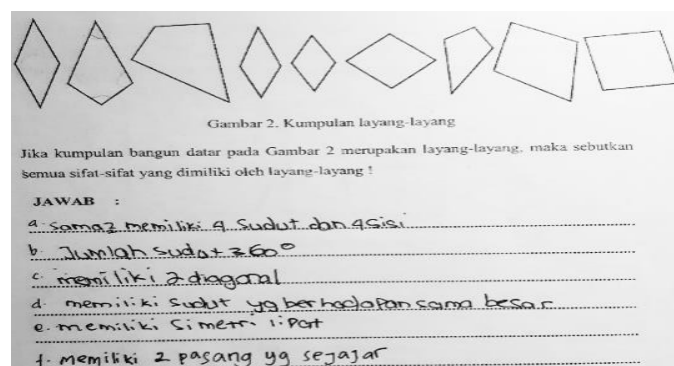 Gambar 2. Kumpulan layang-layang
Jika kumpulan bangun datar pada Gambar 2 merupakan layang-layang, maka sebutkan
semua sifat-sifat yang dimiliki oleh layang-layang !
JAWAB :
a. Sama2 memiliki 4 Sudut dan 4 sisi
b. Jumlah sudut 360°
c. memiliki 2 diagonal
d. memiliki sudut yg berhadapan sama besar
e. memiliki simetri lipat
f. memiliki 2 pasang yg sejajar